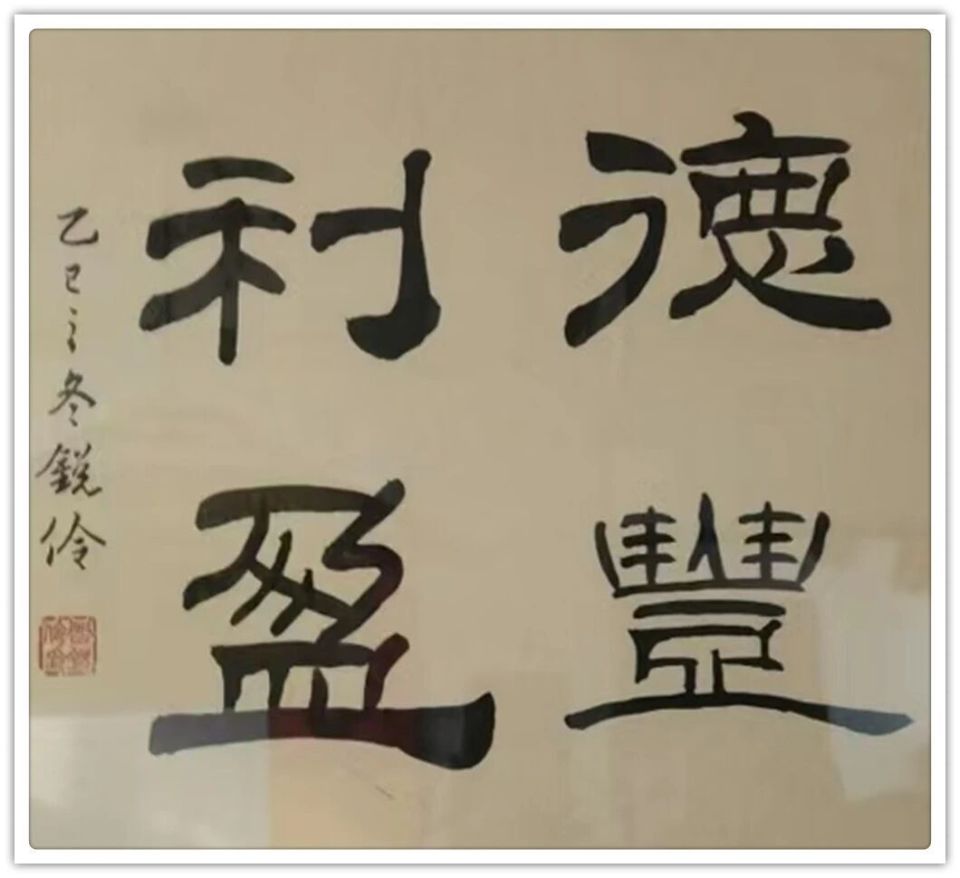 德豐
利盈
乙巳之冬銳伶